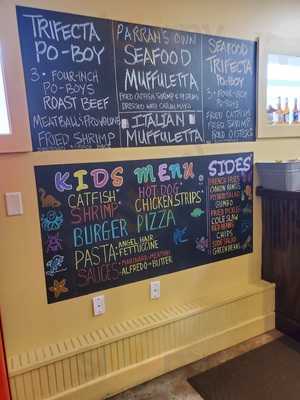 TRIFECTA
PO-BOY
3 - FOUR-INCH
PO-BOYS
ROAST BEEF
MEATBALL & PROVOLONE
FRIED SHRIMP
PARRAH'S OWN
SEAFOOD
MUFFULETTA
FRIED CATFISH, SHRIMP &
DRESSED WITH CAJUN MAYO
ITALIAN
MUFFULETTA
SEAFOOD
TRIFECTA
PO-BOY
3 - FOUR-INCH
PO-BOYS
FRIED CATFISH
FRIED SHRIMP
FRIED OYSTERS
KIDS MENU
CATFISH
SHRIMP
BURGER
HOT DOG
CHICKEN STRIPS
PIZZA
PASTA: ANGEL HAIR
FETTUCCINE
SAUCES: MARINARA - MEATBALL
ALFREDO - BUTTER
SIDES
FRENCH FRIES
ONION RINGS
POTATO SALAD
GUMBO
FRIED PICKLES
COLE SLAW
RED BEANS
CHIPS
SIDE SALAD
GREEN BEANS